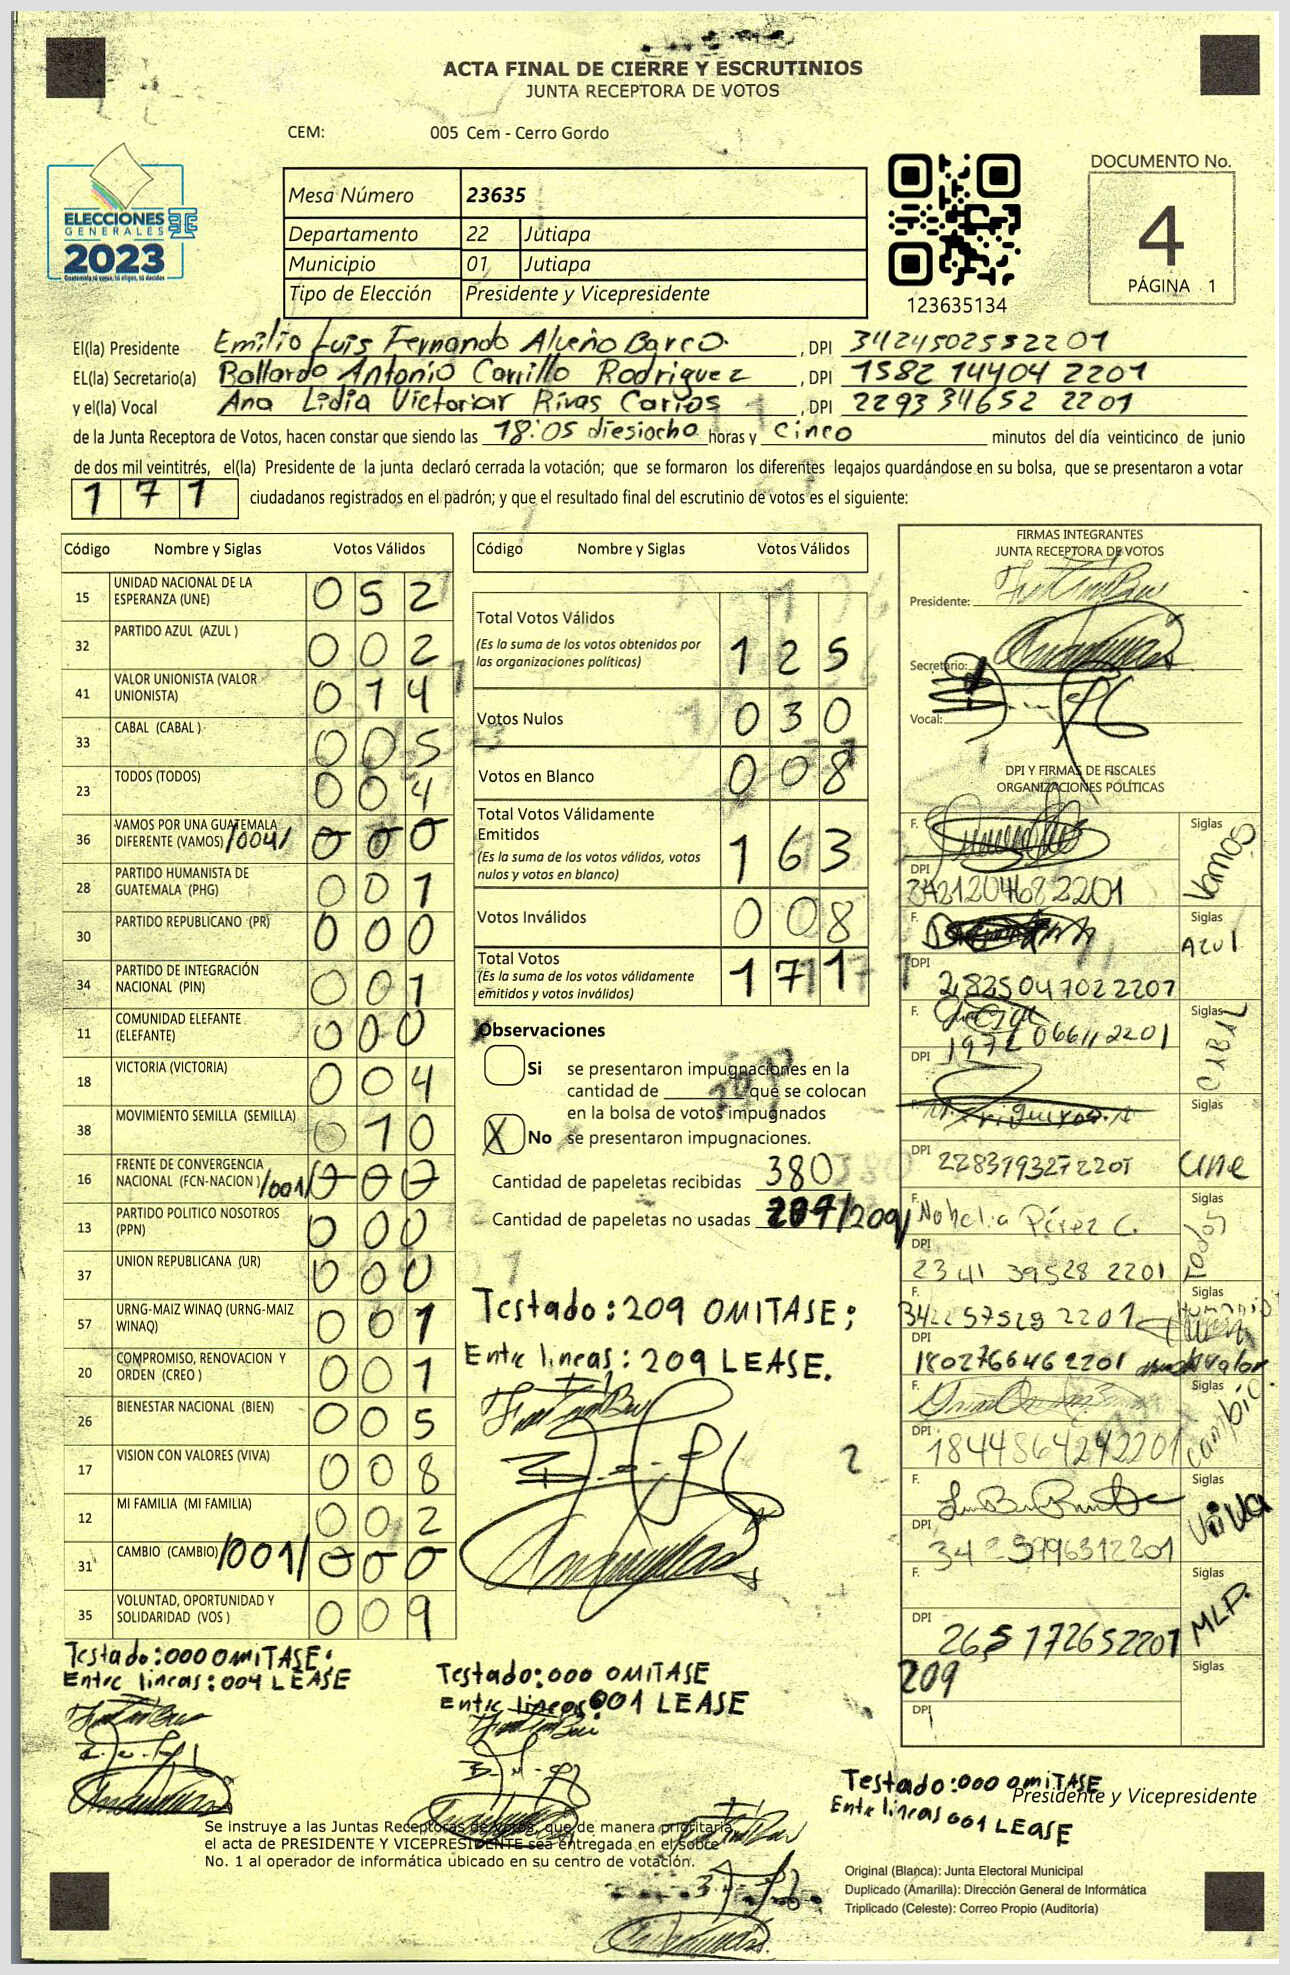 ACTA FINAL DE CIERRE Y ESCRUTINIOS
JUNTA RECEPTORA DE VOTOS
CEM: 005 Cem - Cerro Gordo
ELECCIONES
GENERALES
2023
Mesa Número 23635
Departamento 22 Jutiapa
Municipio 01 Jutiapa
Tipo de Elección Presidente y Vicepresidente
123635134
DOCUMENTO No.
4
PÁGINA 1
El(la) Presidente Emilio Luis Fernando Barco, DPI 3424502552201
EL(la) Secretario(a) Antonio Carrillo Rodriguez, DPI 1582 14404 2201
y el(la) Vocal Ana Lidia Rivas, DPI 2293 34652 2201
de la Junta Receptora de Votos, hacen constar que siendo las 18:05 diesiocho horas y Cinco minutos del día veinticinco de junio
de dos mil veintitrés, el(la) Presidente de la junta declaró cerrada la votación; que se formaron los diferentes legajos guardándose en su bolsa, que se presentaron a votar
171 ciudadanos registrados en el padrón; y que el resultado final del escrutinio de votos es el siguiente:
Código Nombre y Siglas Votos Válidos
15 UNIDAD NACIONAL DE LA ESPERANZA (UNE) 052
32 PARTIDO AZUL (AZUL ) 002
41 VALOR UNIONISTA (VALOR UNIONISTA) 014
33 CABAL (CABAL ) 005
23 TODOS (TODOS) 004
36 VAMOS POR UNA GUATEMALA DIFERENTE (VAMOS) /004/ 000
28 PARTIDO HUMANISTA DE GUATEMALA (PHG) 001
30 PARTIDO REPUBLICANO (PR) 000
34 PARTIDO DE INTEGRACIÓN NACIONAL (PIN) 001
11 COMUNIDAD ELEFANTE (ELEFANTE) 000
18 VICTORIA (VICTORIA) 004
38 MOVIMIENTO SEMILLA (SEMILLA) 010
16 FRENTE DE CONVERGENCIA NACIONAL (FCN-NACION ) /001/ 000
13 PARTIDO POLITICO NOSOTROS (PPN) 000
37 UNION REPUBLICANA (UR) 000
57 URNG-MAIZ WINAQ (URNG-MAIZ WINAQ) 001
20 COMPROMISO, RENOVACION Y ORDEN (CREO ) 001
26 BIENESTAR NACIONAL (BIEN) 005
17 VISION CON VALORES (VIVA) 008
12 MI FAMILIA (MI FAMILIA) 002
31 CAMBIO (CAMBIO) /001/ 000
35 VOLUNTAD, OPORTUNIDAD Y SOLIDARIDAD (VOS ) 009
Testado:000 OMITASE:
Entre lineas:004 LEASE
Código Nombre y Siglas Votos Válidos
Total Votos Válidos 125
(Es la suma de los votos obtenidos por
las organizaciones políticas)
Votos Nulos 030
Votos en Blanco 008
Total Votos Válidamente
Emitidos 163
(Es la suma de los votos válidos, votos
nulos y votos en blanco)
Votos Inválidos 008
Total Votos 171
(Es la suma de los votos válidamente
emitidos y votos inválidos)
Observaciones
Si se presentaron impugnaciones en la
cantidad de ______ que se colocan
en la bolsa de votos impugnados
X No se presentaron impugnaciones.
Cantidad de papeletas recibidas 380
Cantidad de papeletas no usadas /209/
Testado:209 OMITASE;
Entre lineas:209 LEASE.
Testado:000 OMITASE
Entre lineas:001 LEASE
FIRMAS INTEGRANTES
JUNTA RECEPTORA DE VOTOS
Presidente:
Secretario:
Vocal:
DPI Y FIRMAS DE FISCALES
ORGANIZACIONES POLÍTICAS
F. Siglas Vamos
DPI 3421204682201
F. Siglas AZUL
DPI 2825047022207
F. Siglas CABAL
DPI 1972 06611 2201
F. Siglas une
DPI 2283793272201
F. Nohelia Pérez C. Siglas Todos
DPI 2341 39528 2201
342257529 2201 Siglas
DPI 1802766462201 valor
F. Siglas cambio
DPI 1844864242201
F. Siglas ViVA
DPI 34259996312201
F. Siglas MLP.
DPI 2651772652201
209 Siglas
DPI
Testado:000 OMITASE
Entre lineas 001 LEASE
Presidente y Vicepresidente
Se instruye a las Juntas Receptoras de Votos, que de manera prioritaria,
el acta de PRESIDENTE Y VICEPRESIDENTE sea entregada en el sobre
No. 1 al operador de informática ubicado en su centro de votación.
Original (Blanca): Junta Electoral Municipal
Duplicado (Amarilla): Dirección General de Informática
Triplicado (Celeste): Correo Propio (Auditoría)